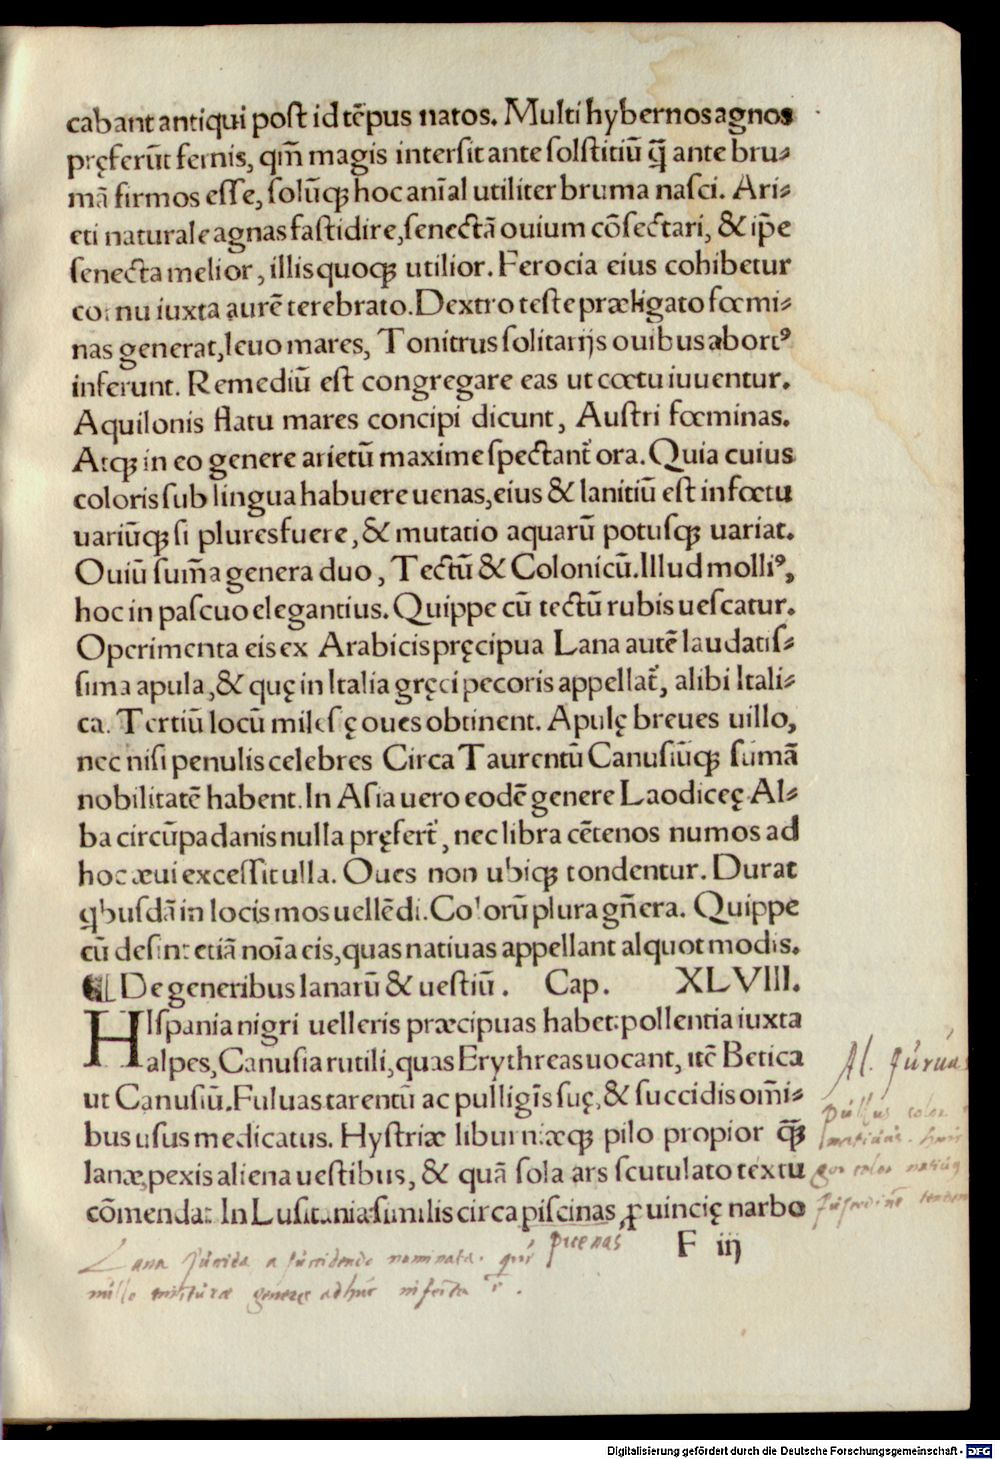 cabant antiqui post id tēpus natos. Multi hybernos agnos
pręferūt fernis, qm̄ magis intersit ante solstitiū q̄ ante bru-
mā firmos esse, solūqꝫ hoc anīal utiliter bruma nasci. Ari-
eti naturale agnas fastidire, senectā ouium cōsectari, & ip̄e
senecta melior, illis quoqꝫ utilior. Ferocia eius cohibetur
cornu iuxta aurē terebrato. Dextro teste præligato fœmi-
nas generat, leuo mares, Tonitrus solitarijs ouibus abortꝰ
inferunt. Remediū est congregare eas ut cœtu iuuentur.
Aquilonis flatu mares concipi dicunt, Austri fœminas.
Atqꝫ in eo genere arietū maxime spectant᷑ ora. Quia cuius
coloris sub lingua habuere uenas, eius & lanitiū est in fœtu
uariūqꝫ si plures fuere, & mutatio aquarū potusqꝫ uariat.
Ouiū sum̄a genera duo, Tectū & Colonicū. Illud molliꝰ,
hoc in pascuo elegantius. Quippe cū tectū rubis uescatur.
Operimenta eis ex Arabicis pręcipua Lana autē laudatis-
sima apula, & quę in Italia gręci pecoris appellat᷑, alibi Itali-
ca. Tertiū locū milesę oues obtinent. Apulę breues uillo,
nec nisi penulis celebres Circa Taurentū Canusiūqꝫ sumā
nobilitatē habent. In Asia uero eodē genere Laodiceę Al-
ba circūpadanis nulla pręfert᷑, nec libra cētenos numos ad
hoc æui excessit ulla. Oues non ubiqꝫ tondentur. Durat
qbusdā in locis mos uellēdi. Colorū plura gn̄era. Quippe
cū desint etiā noīa eis, quas natiuas appellant alquot modis.
¶ De generibus lanarū & uestiū. Cap. XLVIII.
HIspania nigri uelleris præcipuas habet: pollentia iuxta
alpes, Canusia rutili, quas Erythreas uocant, itē Betica
ut Canusiū. Fuluas tarentū ac pulligīs suę, & succidis om̄i-
bus usus medicatus. Hystriæ liburniæqꝫ pilo propior q̄ꝫ
lanæ, pexis aliena uestibus, & quā sola ars scutulato textu
cōmendat In Lusitania similis circa piscinas ꝓuincię narbo
F iij
Al. furuas
pullus color
color natiuus
picenas
Lana succida a succidendo nominata.